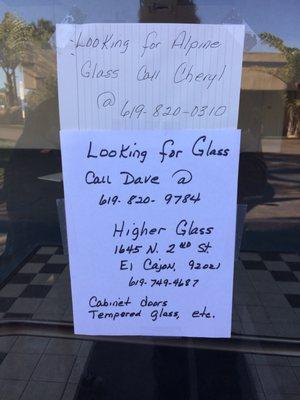 Looking for Alpine
Glass Call Cheryl
@ 619-820-0310
Looking for Glass
Call Dave @
619-820-9784
Higher Glass
1645 N. 2nd St.
El Cajon, 92021
619-749-4687
Cabinet doors
Tempered glass, etc.